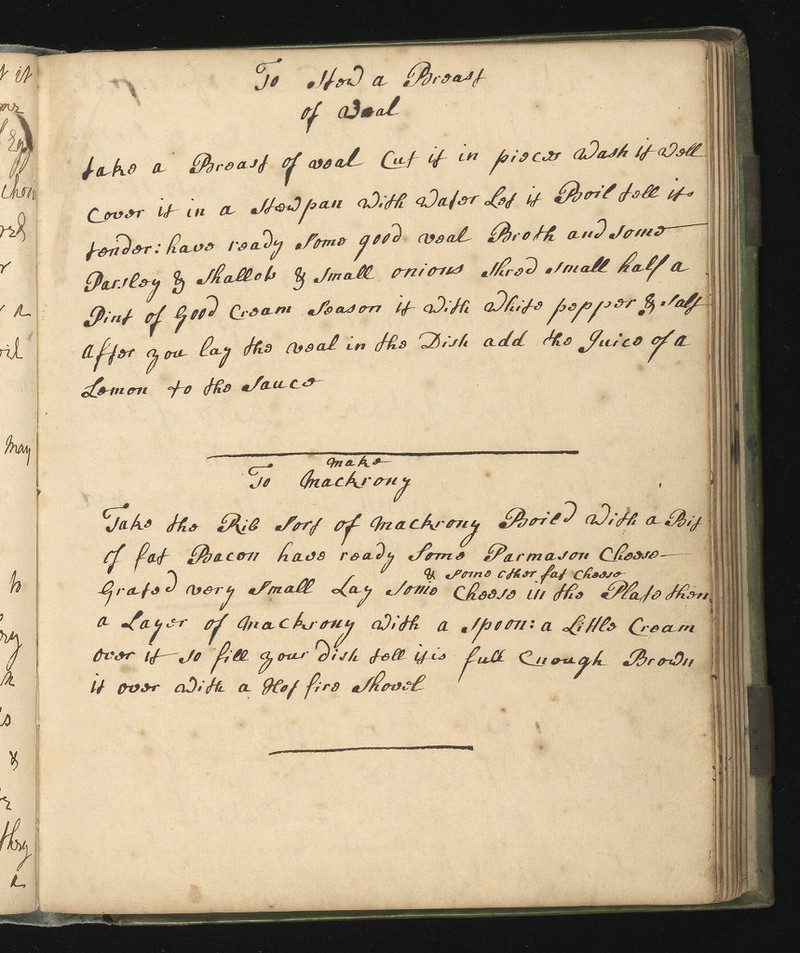 To Stew a Breast
of Veal
take a Breast of veal Cut it in pieces Wash it Well
Cover it in a Stewpan with Water Let it Boil tell its
tender: have ready Some good veal Broth and some
Parsley & Shallots & Small onions Shred small half a
Pint of Good Cream Season it with White pepper & salt
After you lay the veal in the Dish add the Juice of a
Lemon to the Sauce
make
To Mackrony
Take the Rib Sort of Mackrony Boil'd with a Bit
of fat Bacon have ready Some Parmason Cheese
& some other fat Cheese
Grated very Small Lay Some Cheese in the Plate then
a Layer of Mackrony with a Spoon: a Little Cream
over it so fill your Dish tell it is full Enough Brown
it over with a Hot fire Shovel
may